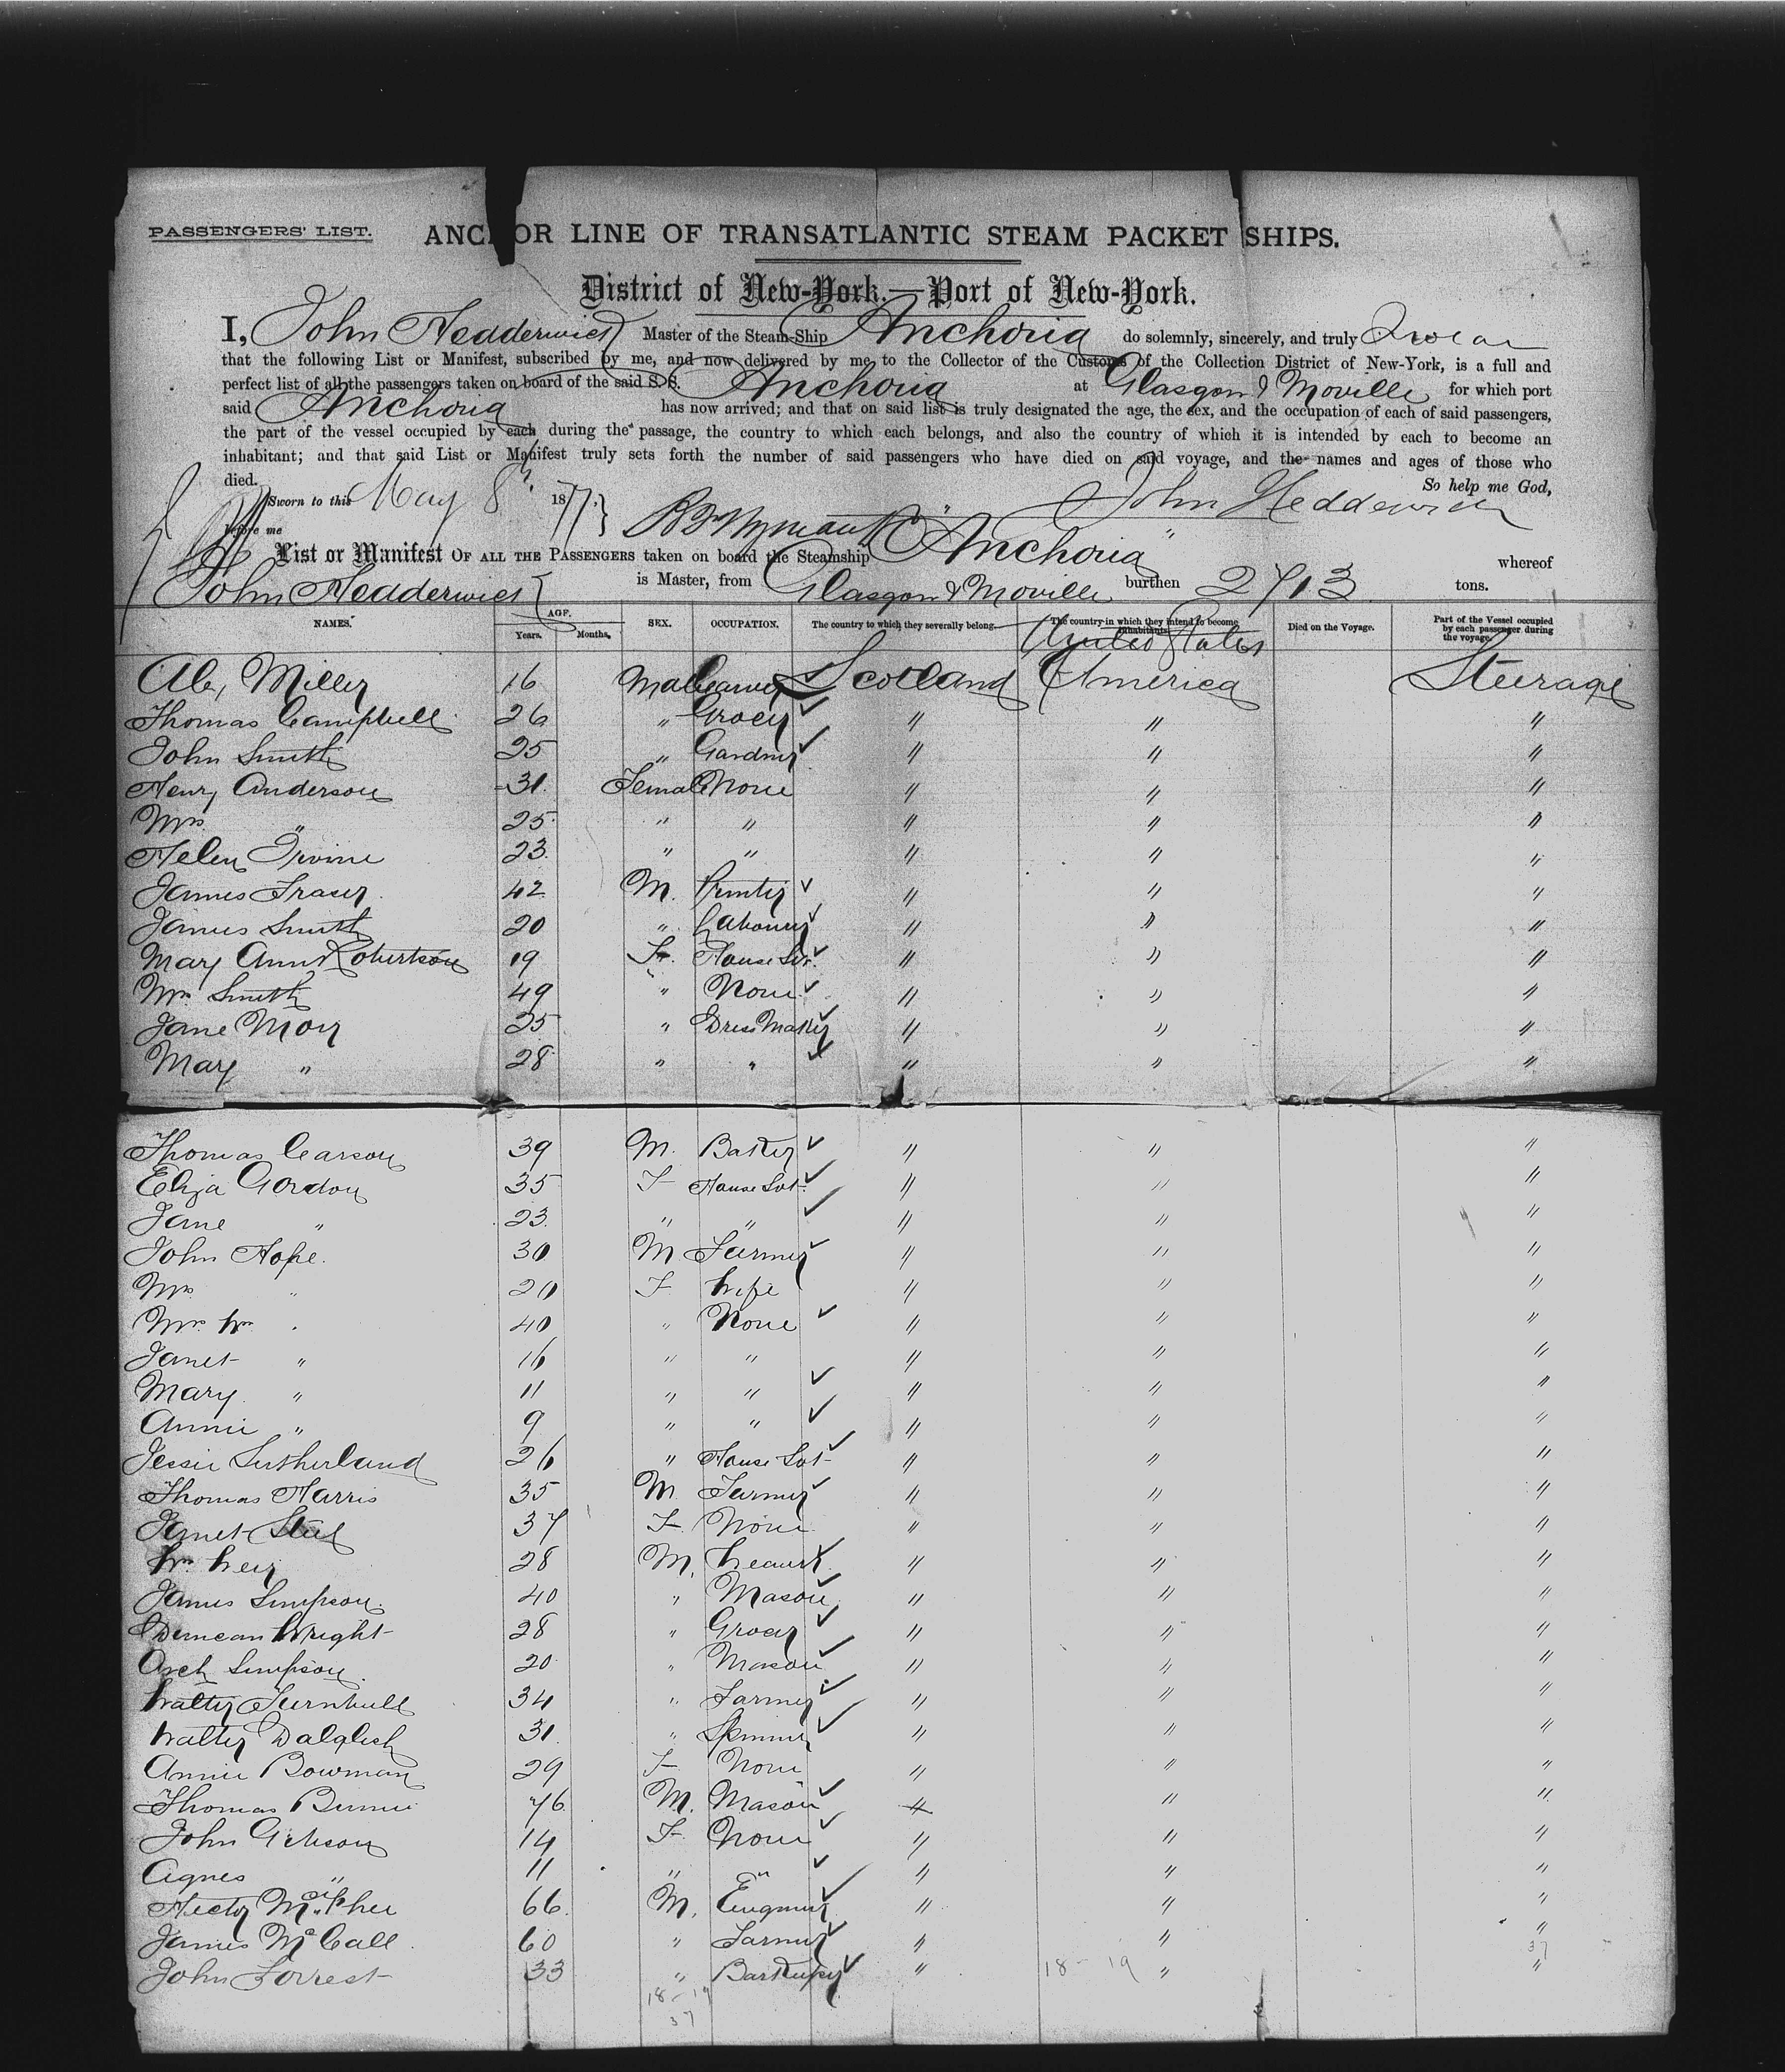 PASSENGERS' LIST.
ANCHOR LINE OF TRANSATLANTIC STEAM PACKET SHIPS.
District of New-York.—Port of New-York.
I, John Hedderwick Master of the Steam-Ship Anchoria do solemnly, sincerely, and truly Swear
that the following List or Manifest, subscribed by me, and now delivered by me to the Collector of the Customs of the Collection District of New-York, is a full and
perfect list of all the passengers taken on board of the said S. S. Anchoria at Glasgow & Moville for which port
said Anchoria has now arrived; and that on said list is truly designated the age, the sex, and the occupation of each of said passengers,
the part of the vessel occupied by each during the passage, the country to which each belongs, and also the country of which it is intended by each to become an
inhabitant; and that said List or Manifest truly sets forth the number of said passengers who have died on said voyage, and the names and ages of those who
died. So help me God,
Sworn to this May 8th 1877. John Hedderwick
before me
List or Manifest OF ALL THE PASSENGERS taken on board the Steamship "Anchoria" whereof
John Hedderwick is Master, from Glasgow & Moville burthen 2713 tons.
NAMES. AGE. Years. Months. SEX. OCCUPATION. The country to which they severally belong. The country in which they intend to become inhabitants. Died on the Voyage. Part of the Vessel occupied by each passenger during the voyage.
United States
Alex Miller 16 Male Scotland America Steerage
Thomas Campbell 26 " Grocer " " "
John Smith 25 " Gardner " " "
Henry Anderson 31 Female None " " "
Mrs " 25 " " " " "
Helen Irvine 23 " " " " "
James Fraser 42 M. Printer " " "
James Smith 20 " Labourer " " "
Mary Ann Robertson 19 F. House Svt. " " "
Mrs Smith 49 " None " " "
Jane Moir 25 " Dress Maker " " "
Mary " 28 " " " " "
Thomas Carson 39 M. Baker " " "
Eliza Gordon 35 F House Svt. " " "
Jane " 23 " " " " "
John Hope. 30 M Farmer " " "
Mrs " 20 F Wife " " "
Mrs Wm " 40 " None " " "
Janet " 16 " " " " "
Mary " 11 " " " " "
Annie " 9 " " " " "
Jessie Sutherland 26 " House Svt " " "
Thomas Harris 35 M Farmer " " "
Janet Steel 37 F. None " " "
Wm Weir 28 M. Weaver " " "
James Simpson. 40 " Mason " " "
Duncan Wright 28 " Grocer " " "
Arch Simpson. 20 " Mason " " "
Walter Turnbull 34 " Farmer " " "
Walter Dalglish 31 " Spinner " " "
Annie Bowman 29 F None " " "
Thomas Binnie 76 M. Mason " " "
John Gibson 14 F None " " "
Agnes " 11 " " " " "
Hector 66 M. Engineer " " "
James McCall 60 " Farmer " " "
37
John Forrest 33 " Barkeeper " 18-19 " "
18-19
37